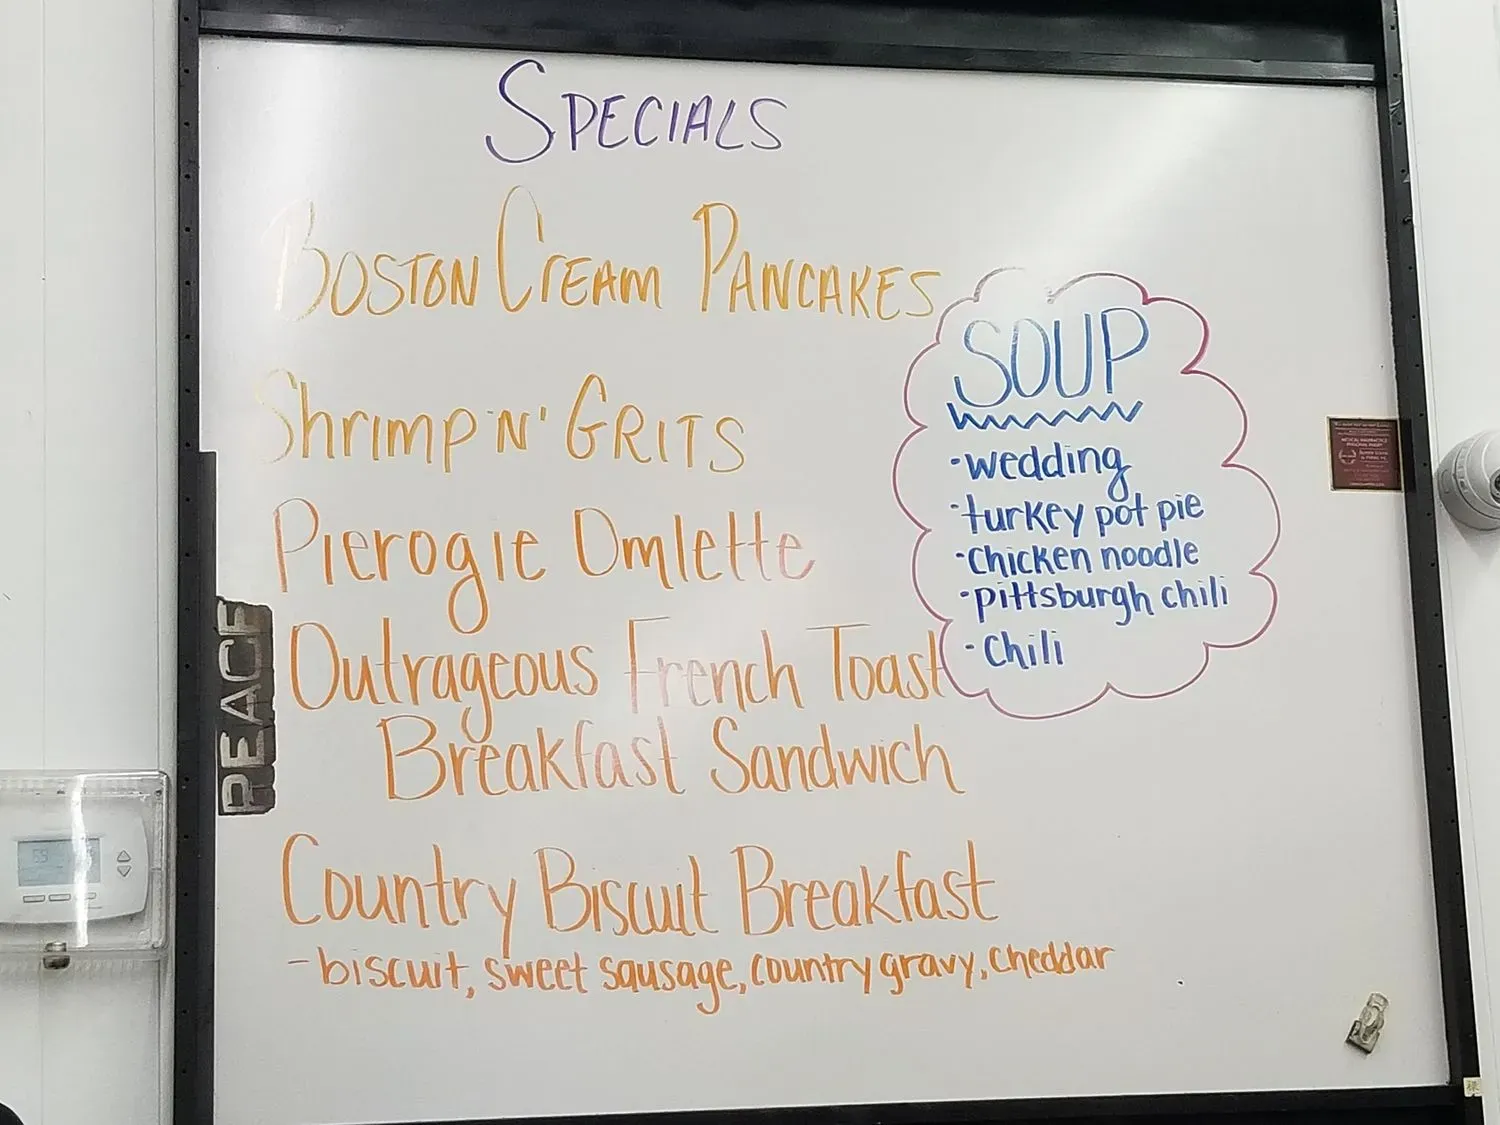 SPECIALS
BOSTON CREAM PANCAKES
Shrimp 'N' GRITS
Pierogie Omlette
Outrageous French Toast
Breakfast Sandwich
Country Biscuit Breakfast
- biscuit, sweet sausage, country gravy, cheddar
SOUP
· wedding
· turkey pot pie
· Chicken noodle
· pittsburgh chili
· Chili
PEACE